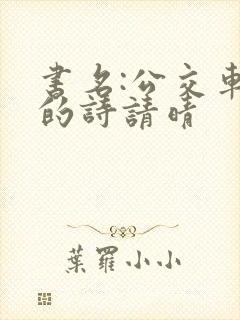 书名:公交車
的詩請晴
葉羅小小